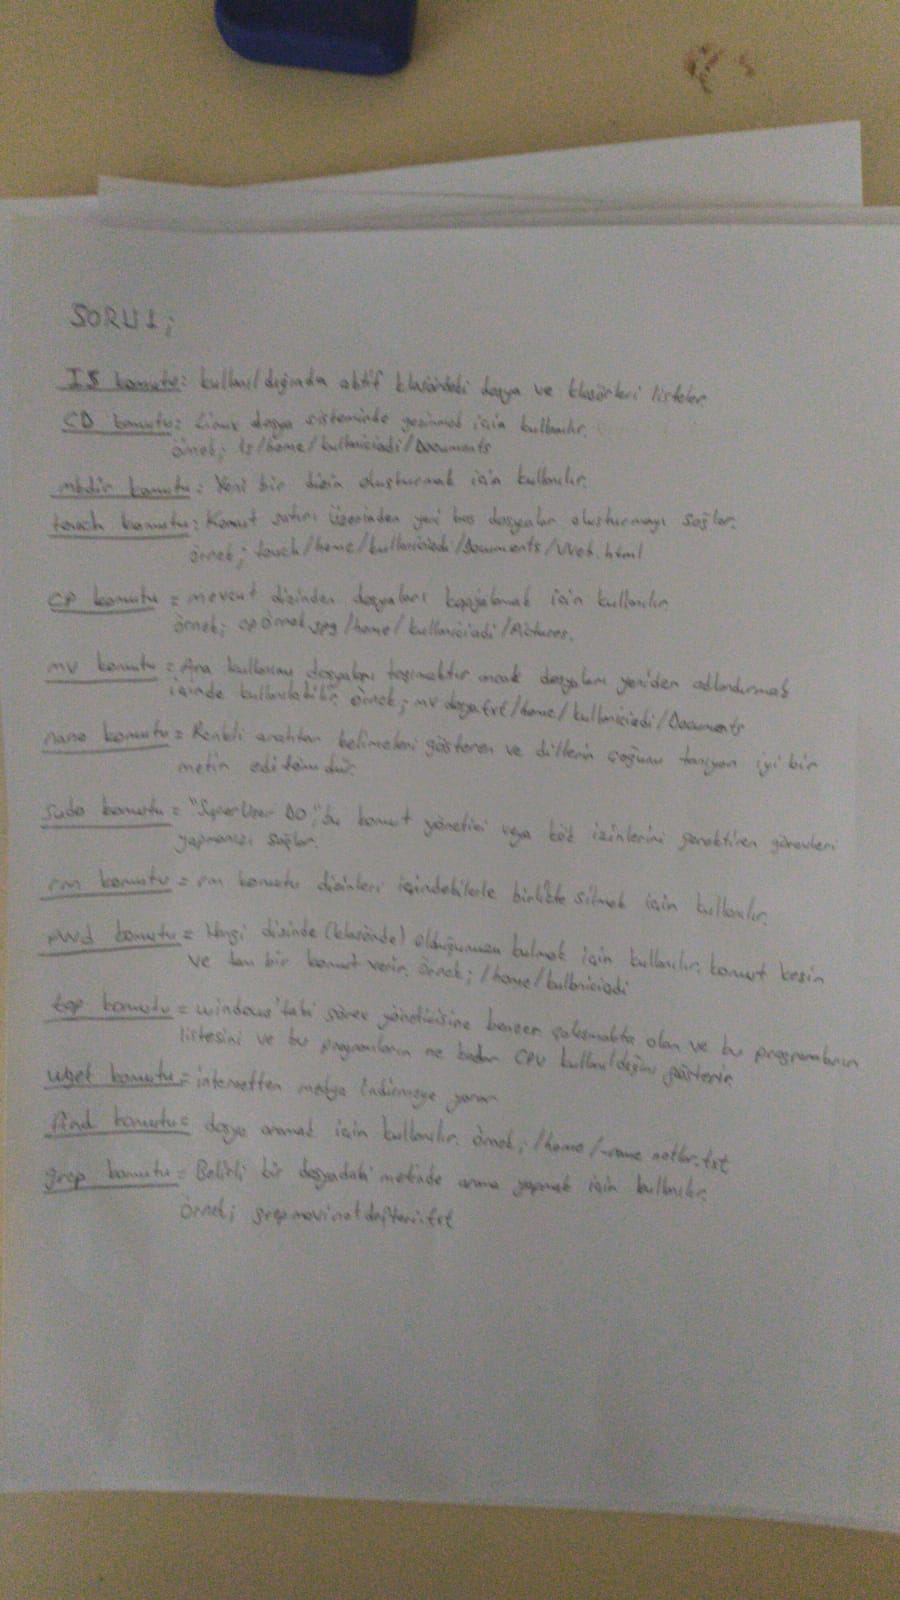 SORU 1;
IS komutu: kullanıldığında aktif klasördeki dosya ve klasörleri listeler
CD komutu: Linux dosya sisteminde gezinmek için kullanılır.
örnek; ls/home/kullaniciadi/Documents
mkdir komutu: Yeni bir dizin oluşturmak için kullanılır.
touch komutu: Komut satırı üzerinden yeni boş dosyalar oluşturmayı sağlar.
örnek; touch/home/kullaniciadi/Documents/Web.html
CP komutu = mevcut dizinden dosyaları kopyalamak için kullanılır
örnek; cp örnek.jpg /home/kullaniciadi/Pictures.
mv komutu = Ana kullanımı dosyaları taşımaktır ancak dosyaları yeniden adlandırmak
içinde kullanılabilir. örnek; mv dosya.txt/home/kullaniciadi/Documents
nano komutu = Renkli anahtar kelimeleri gösteren ve dillerin çoğunu tanıyan iyi bir
metin editörüdür.
Sudo komutu = "SuperUser DO", bu komut yönetici veya kök izinlerini gerektiren görevleri
yapmanızı sağlar.
rm komutu = rm komutu dizinleri içindekilerle birlikte silmek için kullanılır.
PWd komutu = Hangi dizinde (klasörde) olduğunuzu bulmak için kullanılır. komut kesin
ve tam bir komut verir. örnek; /home/kullaniciadi
top komutu = windows'taki görev yöneticisine benzer çalışmakta olan ve bu programların
listesini ve bu programların ne kadar CPU kullanıldığını gösterir.
wget komutu = internetten medya indirmeye yarar
find komutu = dosya aramak için kullanılır. örnek; /home/-name notlar.txt
grep komutu = Belirli bir dosyadaki metinde arama yapmak için kullanılır.
örnek; grep mavi notdefteri.txt